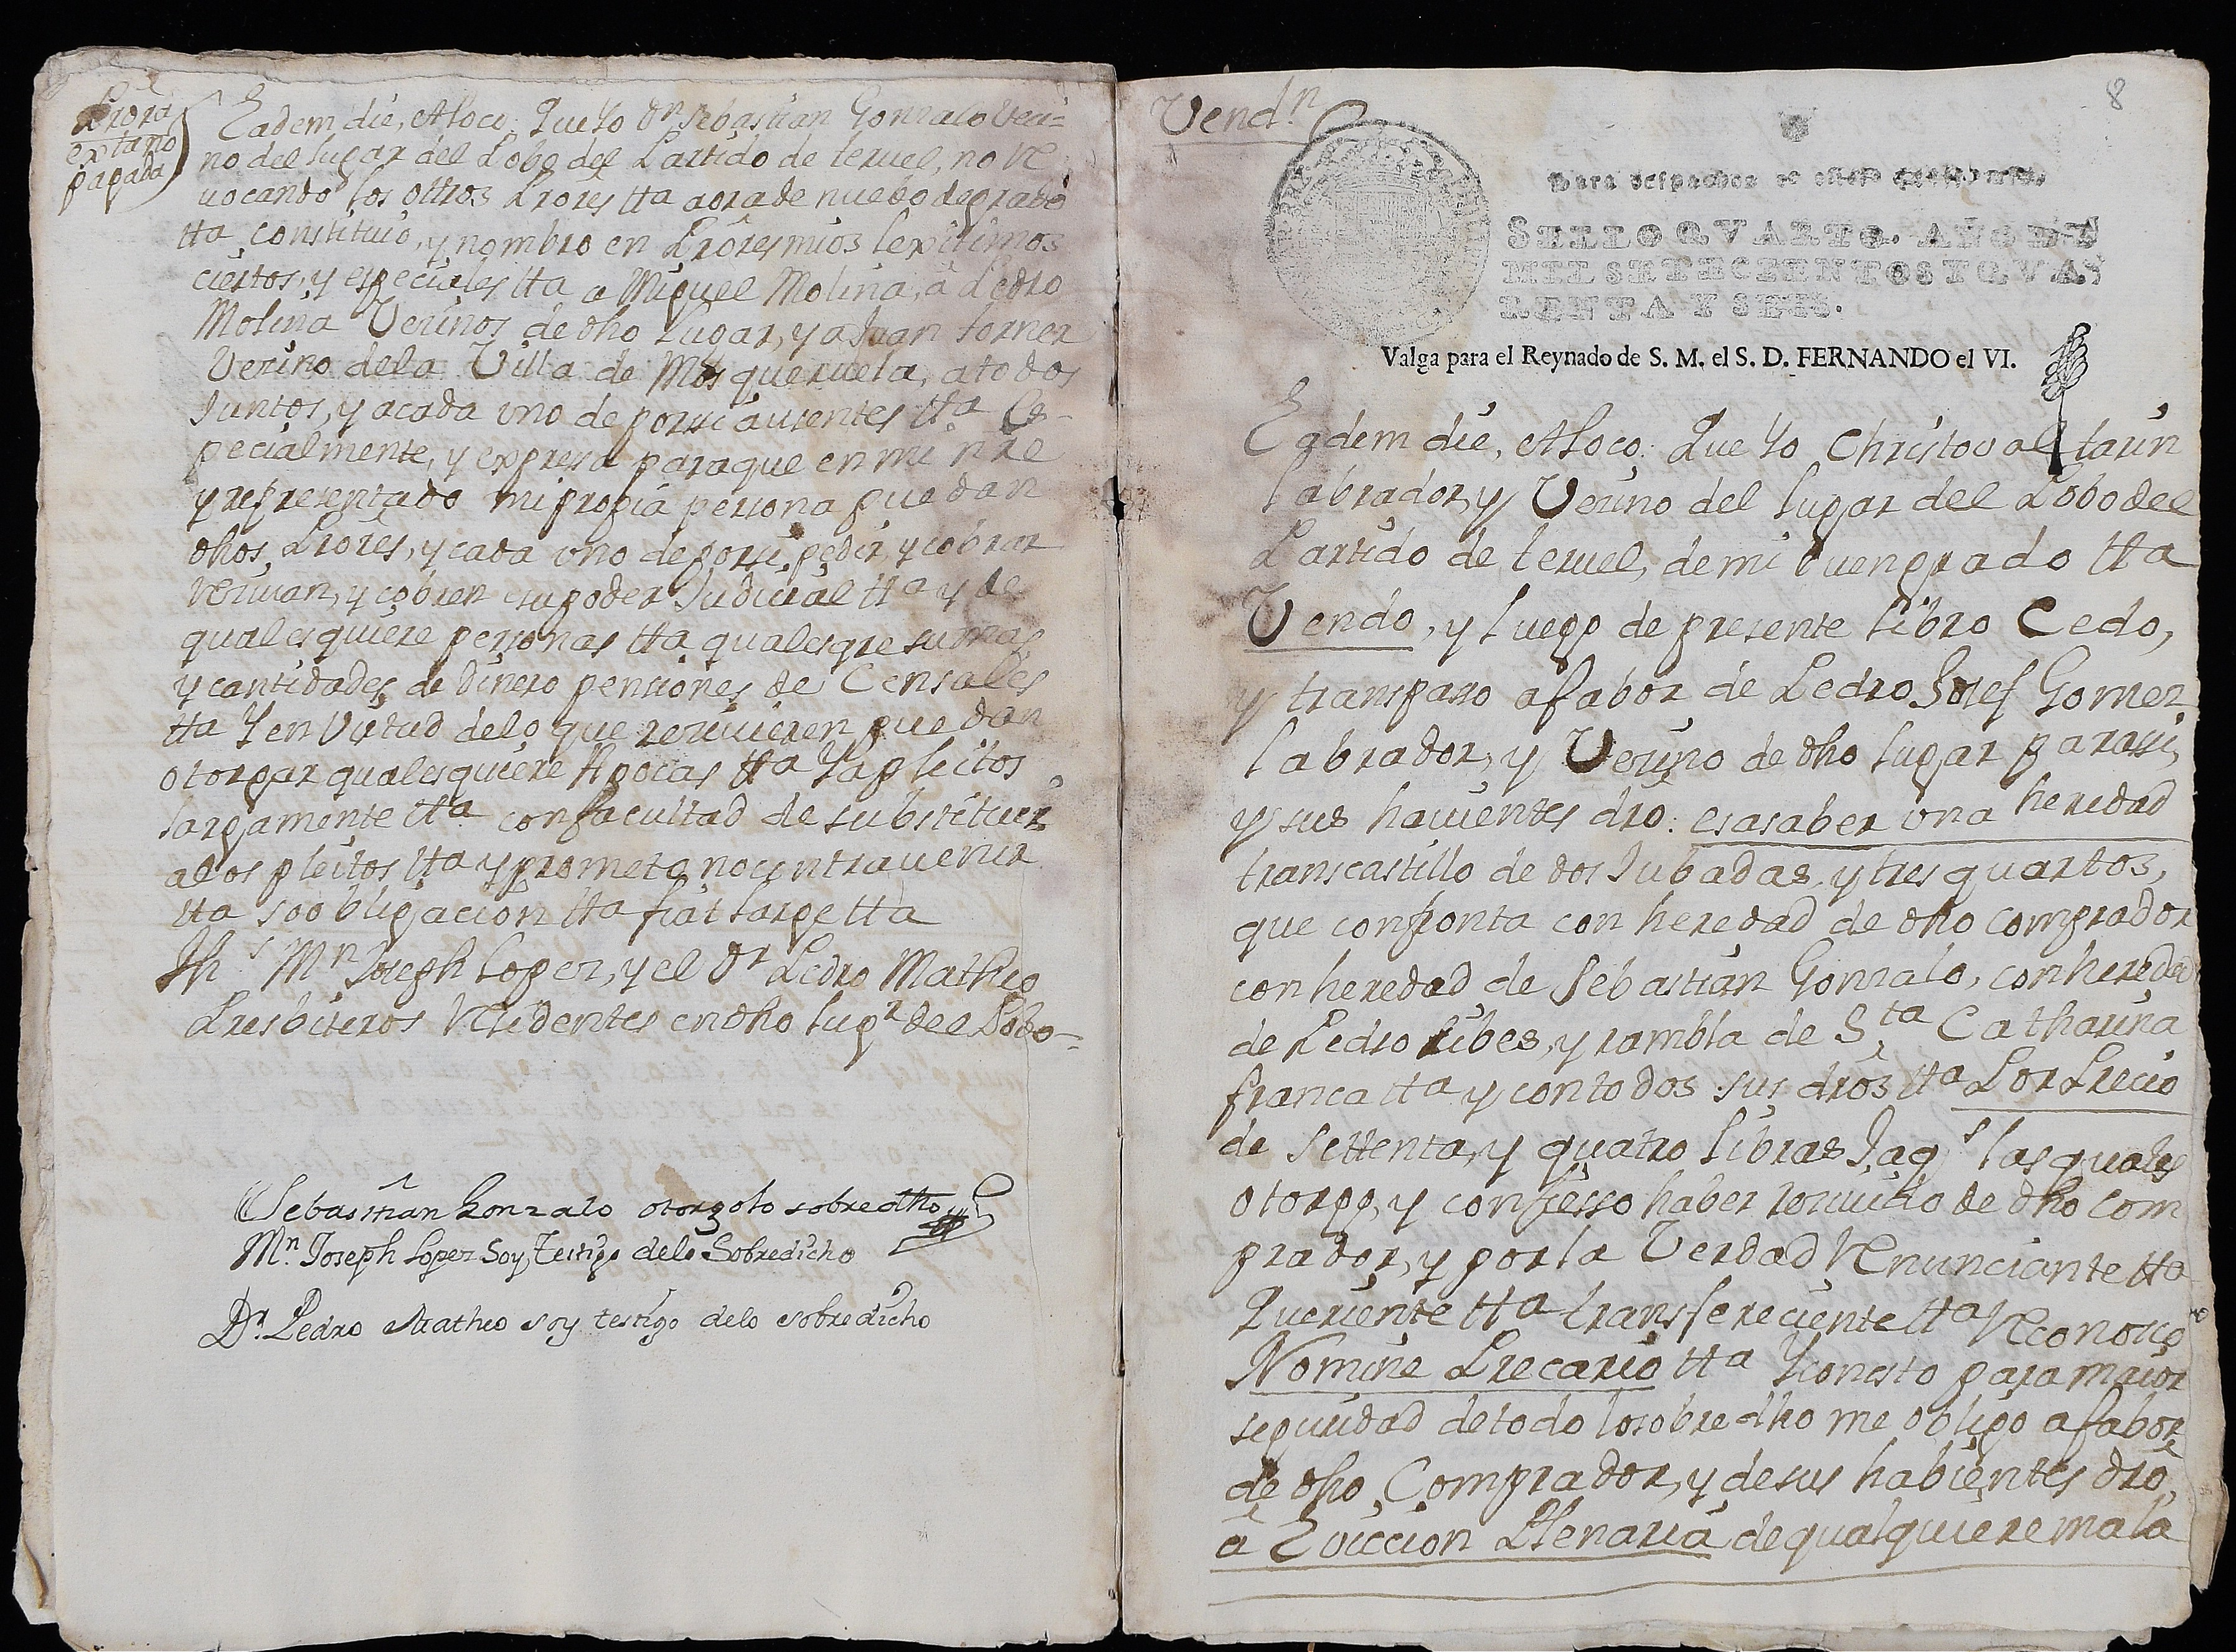 Prorã
extãno
pagada
Eadem die, et loco: Que Yo Dn. Sebastian Gonzalo Veci=
no del lugar del Pobo del Partido de teruel, no re
vocando los ottros Prores tta aora de nuebo de grado
tta constituio, y nombro en Prores mios lexitimos
ciertos, y especiales tta a Miguel Molina, a Pedro
Molina Vecinos de dho lugar, y a Juan forner
Vecino dela Villa de Mosqueruela, a todos
Juntos, y acada uno de porsi ausentes tta Es-
pecialmente, y expresa paraque en mi nre
y representado mi propia persona puedan
dhos Prores, y cada uno de porsi, pedir, y cobrar
recivan, y cobren en su poder Judicial tta y de
qualesquiere personas tta qualesqre sumas
y cantidades de dinero pensiones de Censales
tta Y en Virtud delo que recivieren puedan
otorgar qualesquiere Apocas tta Y a pleitos
largamente tta con facultad de substituir
a dos pleitos tta y prometo no contravenir
tta so obligacion tta fiat large tta
Ths. Mn. Joseph Lopez, y el Dr. Pedro Matheo
Presbiteros residentes en dho lugr. del Pobo-
Sebastian Gonzalo otorgolo sobredho
Mn. Joseph Lopez Soy Testigo delo Sobredicho
Dr. Pedro Matheo soy testigo delo sobredicho
Vendn.
8
Para despachos de oficio
SELLO QVARTO. AÑO DE
MIL SETECIENTOS Y QVA
RENTA Y SEIS.
Valga para el Reynado de S. M. el S. D. FERNANDO el VI.
Eadem die, et loco: Que Yo Christoval
labrador, y Vecino del lugar del Pobo del
Partido de teruel, de mi buen grado tta
Vendo, y luego de presente libro Cedo,
y transpasso a fabor de Pedro Josef Gomez
labrador, y Vecino de dho lugar parassi,
y sus havientes dro: esasaber una heredad
transcastillo de dos Jubadas, y tres quartos,
que confronta con heredad de dho comprador
con heredad de Sebastian Gonzalo, con heredad
de Pedro ribes, y rambla de Sta. Catharina
franca tta y con todos sus dros tta Por Precio
de Settenta, y quatro libras Jaqs. las quales
otorgo, y confiesso haber recivido de dho com
prador, y por la Verdad renunciante tta
Queriente tta transfereciente tta reconosco
Nomine Precario tta Y con esto para maior
seguridad de todo lo sobredho me obligo a fabor
de dho Comprador, y de sus habientes dro,
a Eviccion Plenaria de qualquiere mala